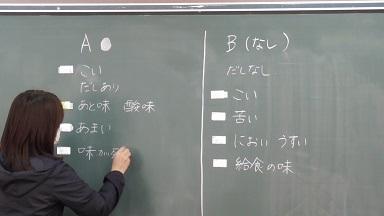 A
こい
だしあり
あと味 酸味
あまい
味が
B (なし)
だしなし
こい
苦い
におい うすい
給食の味